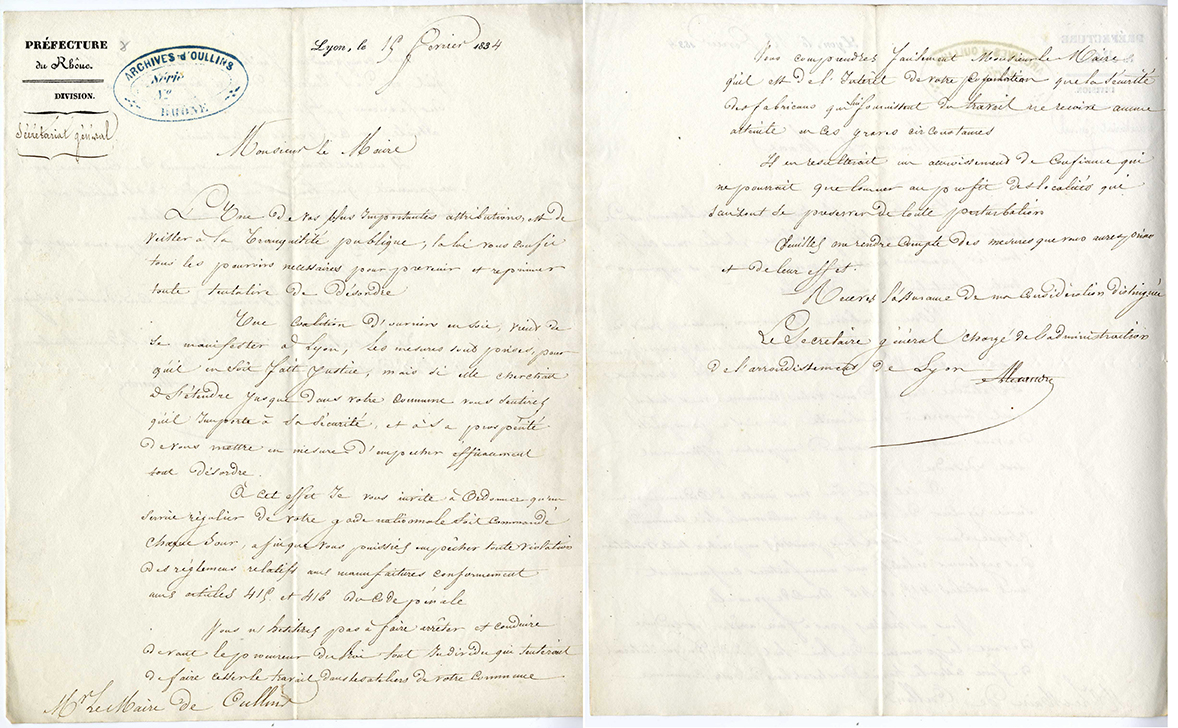 PRÉFECTURE
du Rhône.
DIVISION.
Sécrétariat général
ARCHIVES d'OULLINS
Série
No
RHÔNE
Lyon, le 15 fevrier 1834
Monsieur le Maire
L'Une de vos plus Importantes attributions, est de
veiller à la tranquilité publique, la loi vous confie
tous les pouvoirs nécessaires pour prevenir et reprimer
toute tentative de Désordre
Une coalition D'ouvriers en soie, vient de
se manifester à Lyon, les mesures sont prises, pour
qu'il en soit fait Justice, mais si elle cherchait
à S'étendre jusque dans votre commune vous sentirez
qu'il Importe à sa sécurité, et à sa prospérité
de vous mettre en mesure D'empecher efficacement
tout désordre.
À cet effet Je vous invite à Ordonner qu'un
service régulier de votre garde nationale soit commandé
chaque Jour, afin que vous puissiez empêcher toute violation
des réglemens relatifs aux manufactures conformement
aux articles 415 et 416 du Code pénale
Vous n'hésiterez pas à faire arrêter et conduire
devant le procureur du Roi tout Individu qui tenterait
de faire cesser le travail dans les ateliers de votre Commune
Mr. Le Maire de Oullins
Vous comprendrez facilement Monsieur le Maire
qu'il est de l'Interêt de votre population que la sécurité
des fabricans qui lui fournissent du travail ne recoive aucune
atteinte en ces graves circonstances
Il en resulterait un accroissement de Confiance qui
ne pourrait que tourner au profit des localités qui
sauront se preserver de toute perturbation
Veuillez me rendre Compte des mesures que vous aurez prises
et de leur effet.
Recevez l'assurance de ma considération distinguée
Le Secrétaire général chargé de l'administration
de l'arrondissement de Lyon
Alexandre